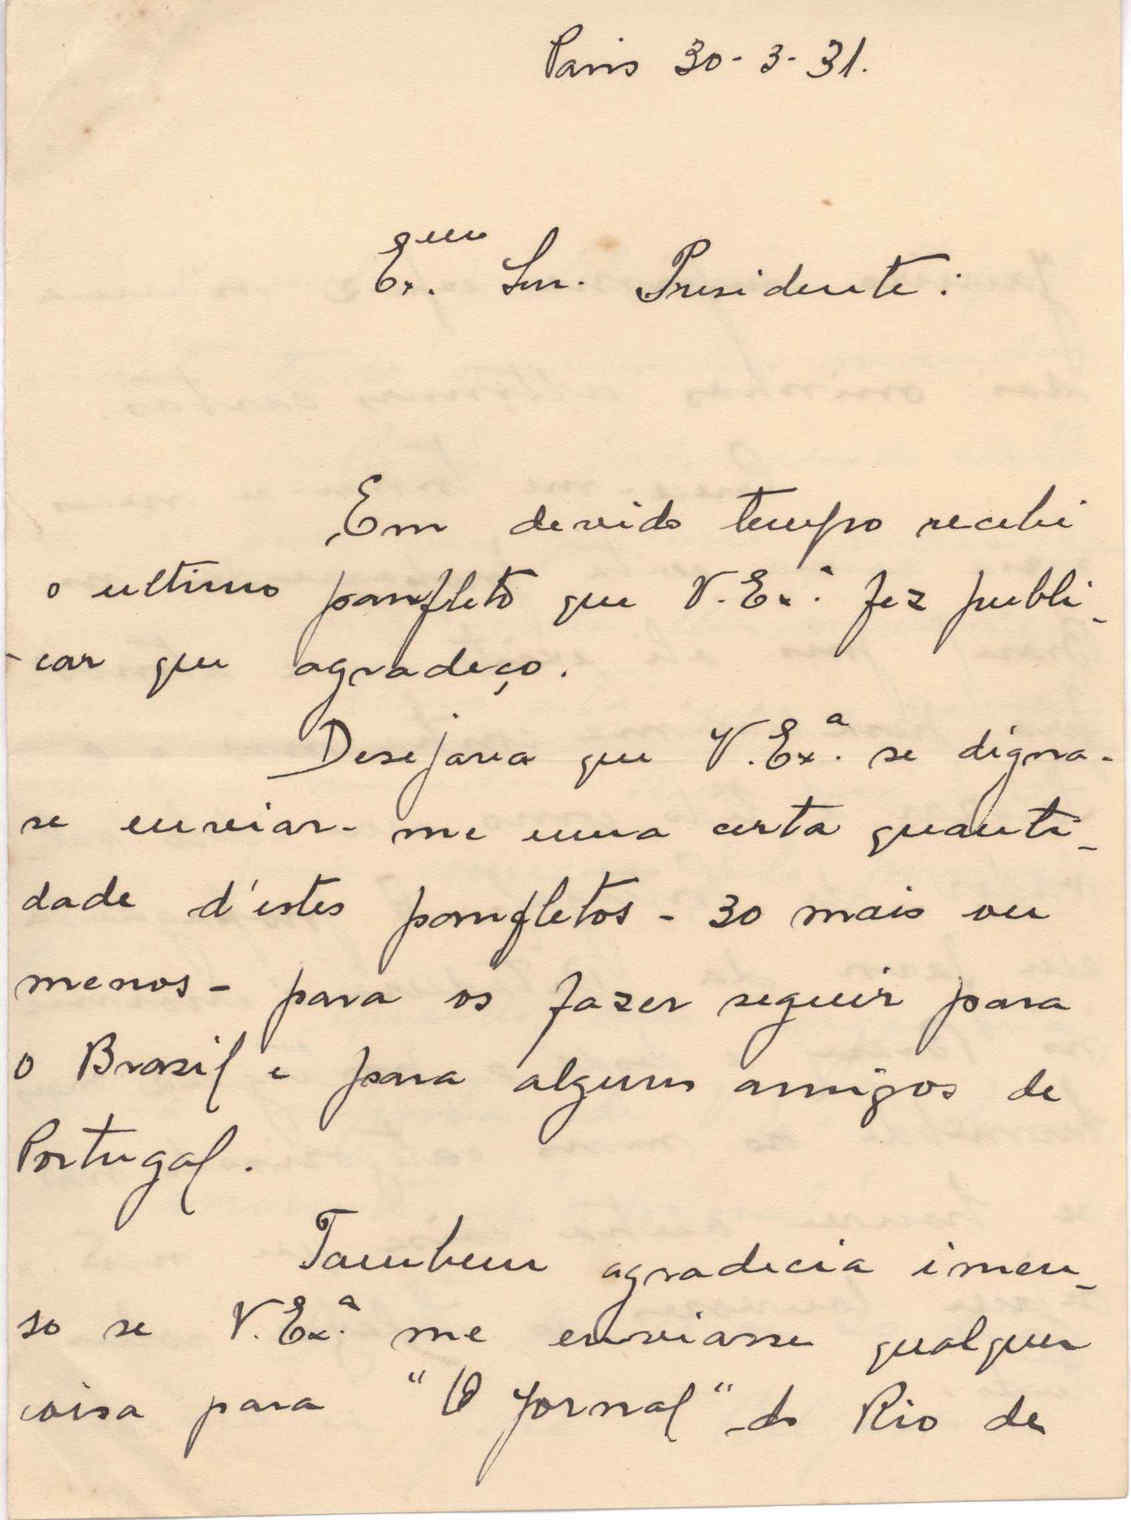 Paris 30-3-31.
Ex.mo Snr. Presidente:
Em devido tempo recebi
o ultimo panfleto que V. Ex.ª fez publi-
-car que agradeço.
Desejaria que V. Ex.ª se digna-
se enviar-me uma certa quanti-
dade d'estes panfletos - 30 mais ou
menos - para os fazer seguir para
o Brasil e para alguns amigos de
Portugal.
Tambem agradecia imen-
so se V. Ex.ª me enviasse qualquer
coisa para "O Jornal" do Rio de